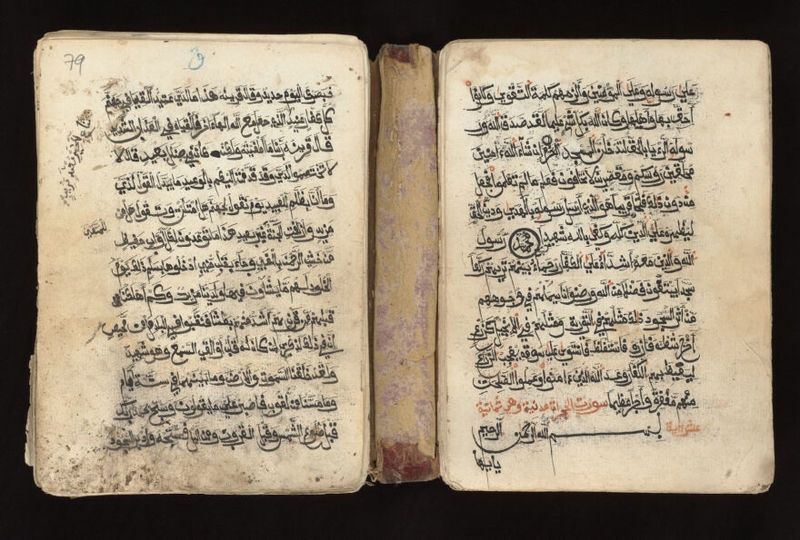 على رسوله وعلى المومنين والزمهم كلمة التقوى وكانوا
احق بها واهلها وكان الله بكل شيء عليما لقد صدق الله ر
سوله الرءيا بالحق لتدخلن المسجد الحرام ان شاء الله ءامنين
محلقين رءوسكم ومقصرين لا تخافون فعلم ما لم تعلموا فجعل
من دون ذلك فتحا قريبا هو الذي ارسل رسوله بالهدى ودين الحق
ليظهره على الدين كله وكفى بالله شهيدا محمد رسول
الله والذين معه اشداء على الكفار رحماء بينهم تريهم ركعا
سجدا يبتغون فضلا من الله ورضوانا سيماهم في وجوههم
من اثر السجود ذلك مثلهم في التورية ومثلهم في الانجيل كزرع
اخرج شطئه فازره فاستغلظ فاستوى على سوقه يعجب الزراع
ليغيظ بهم الكفار وعد الله الذين ءامنوا وعملوا الصلحت
منهم مغفرة واجرا عظيما سورت الحجرات مدنية وهي ثمانية
عشر اية
بسم الله الرحمن الرحيم
يايها
79
فبصرك اليوم حديد وقال قرينه هذا ما لدي عتيد القيا في جهنم
كل كفار عنيد الذي جعل مع الله الها ءاخر فالقيه في العذاب الشديد
مناع للخير معتد مريب
قال قرينه ربنا ما اطغيته ولكن كان في ضلل بعيد قال لا
تختصموا لدي وقد قدمت اليكم بالوعيد ما يبدل القول لدي
وما انا بظلم للعبيد يوم يقول لجهنم هل امتلات وتقول هل من
للمتقين
مزيد وازلفت الجنة غير بعيد هذا ما توعدون لكل اواب حفيظ
من خشي الرحمن بالغيب وجاء بقلب منيب ادخلوها بسلم ذلك يوم
الخلود لهم ما يشاءون فيها ولدينا مزيد وكم اهلكنا
قبلهم من قرن هم اشد منهم بطشا فنقبوا في البلد هل من محيص
ان في ذلك لذكرى لمن كان له قلب او القى السمع وهو شهيد
ولقد خلقنا السموت والارض وما بينهما في ستة ايام
وما مسنا من لغوب فاصبر على ما يقولون وسبح بحمد ربك
قبل طلوع الشمس وقبل الغروب ومن اليل فسبحه وادبر السجود